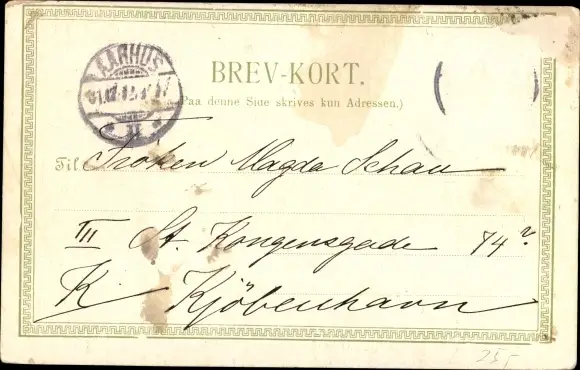 AARHUS
BREV-KORT.
(Paa denne Side skrives kun Adressen.)
Til Frøken Magda Schau
III St. Kongensgade 74
K Kjöbenhavn